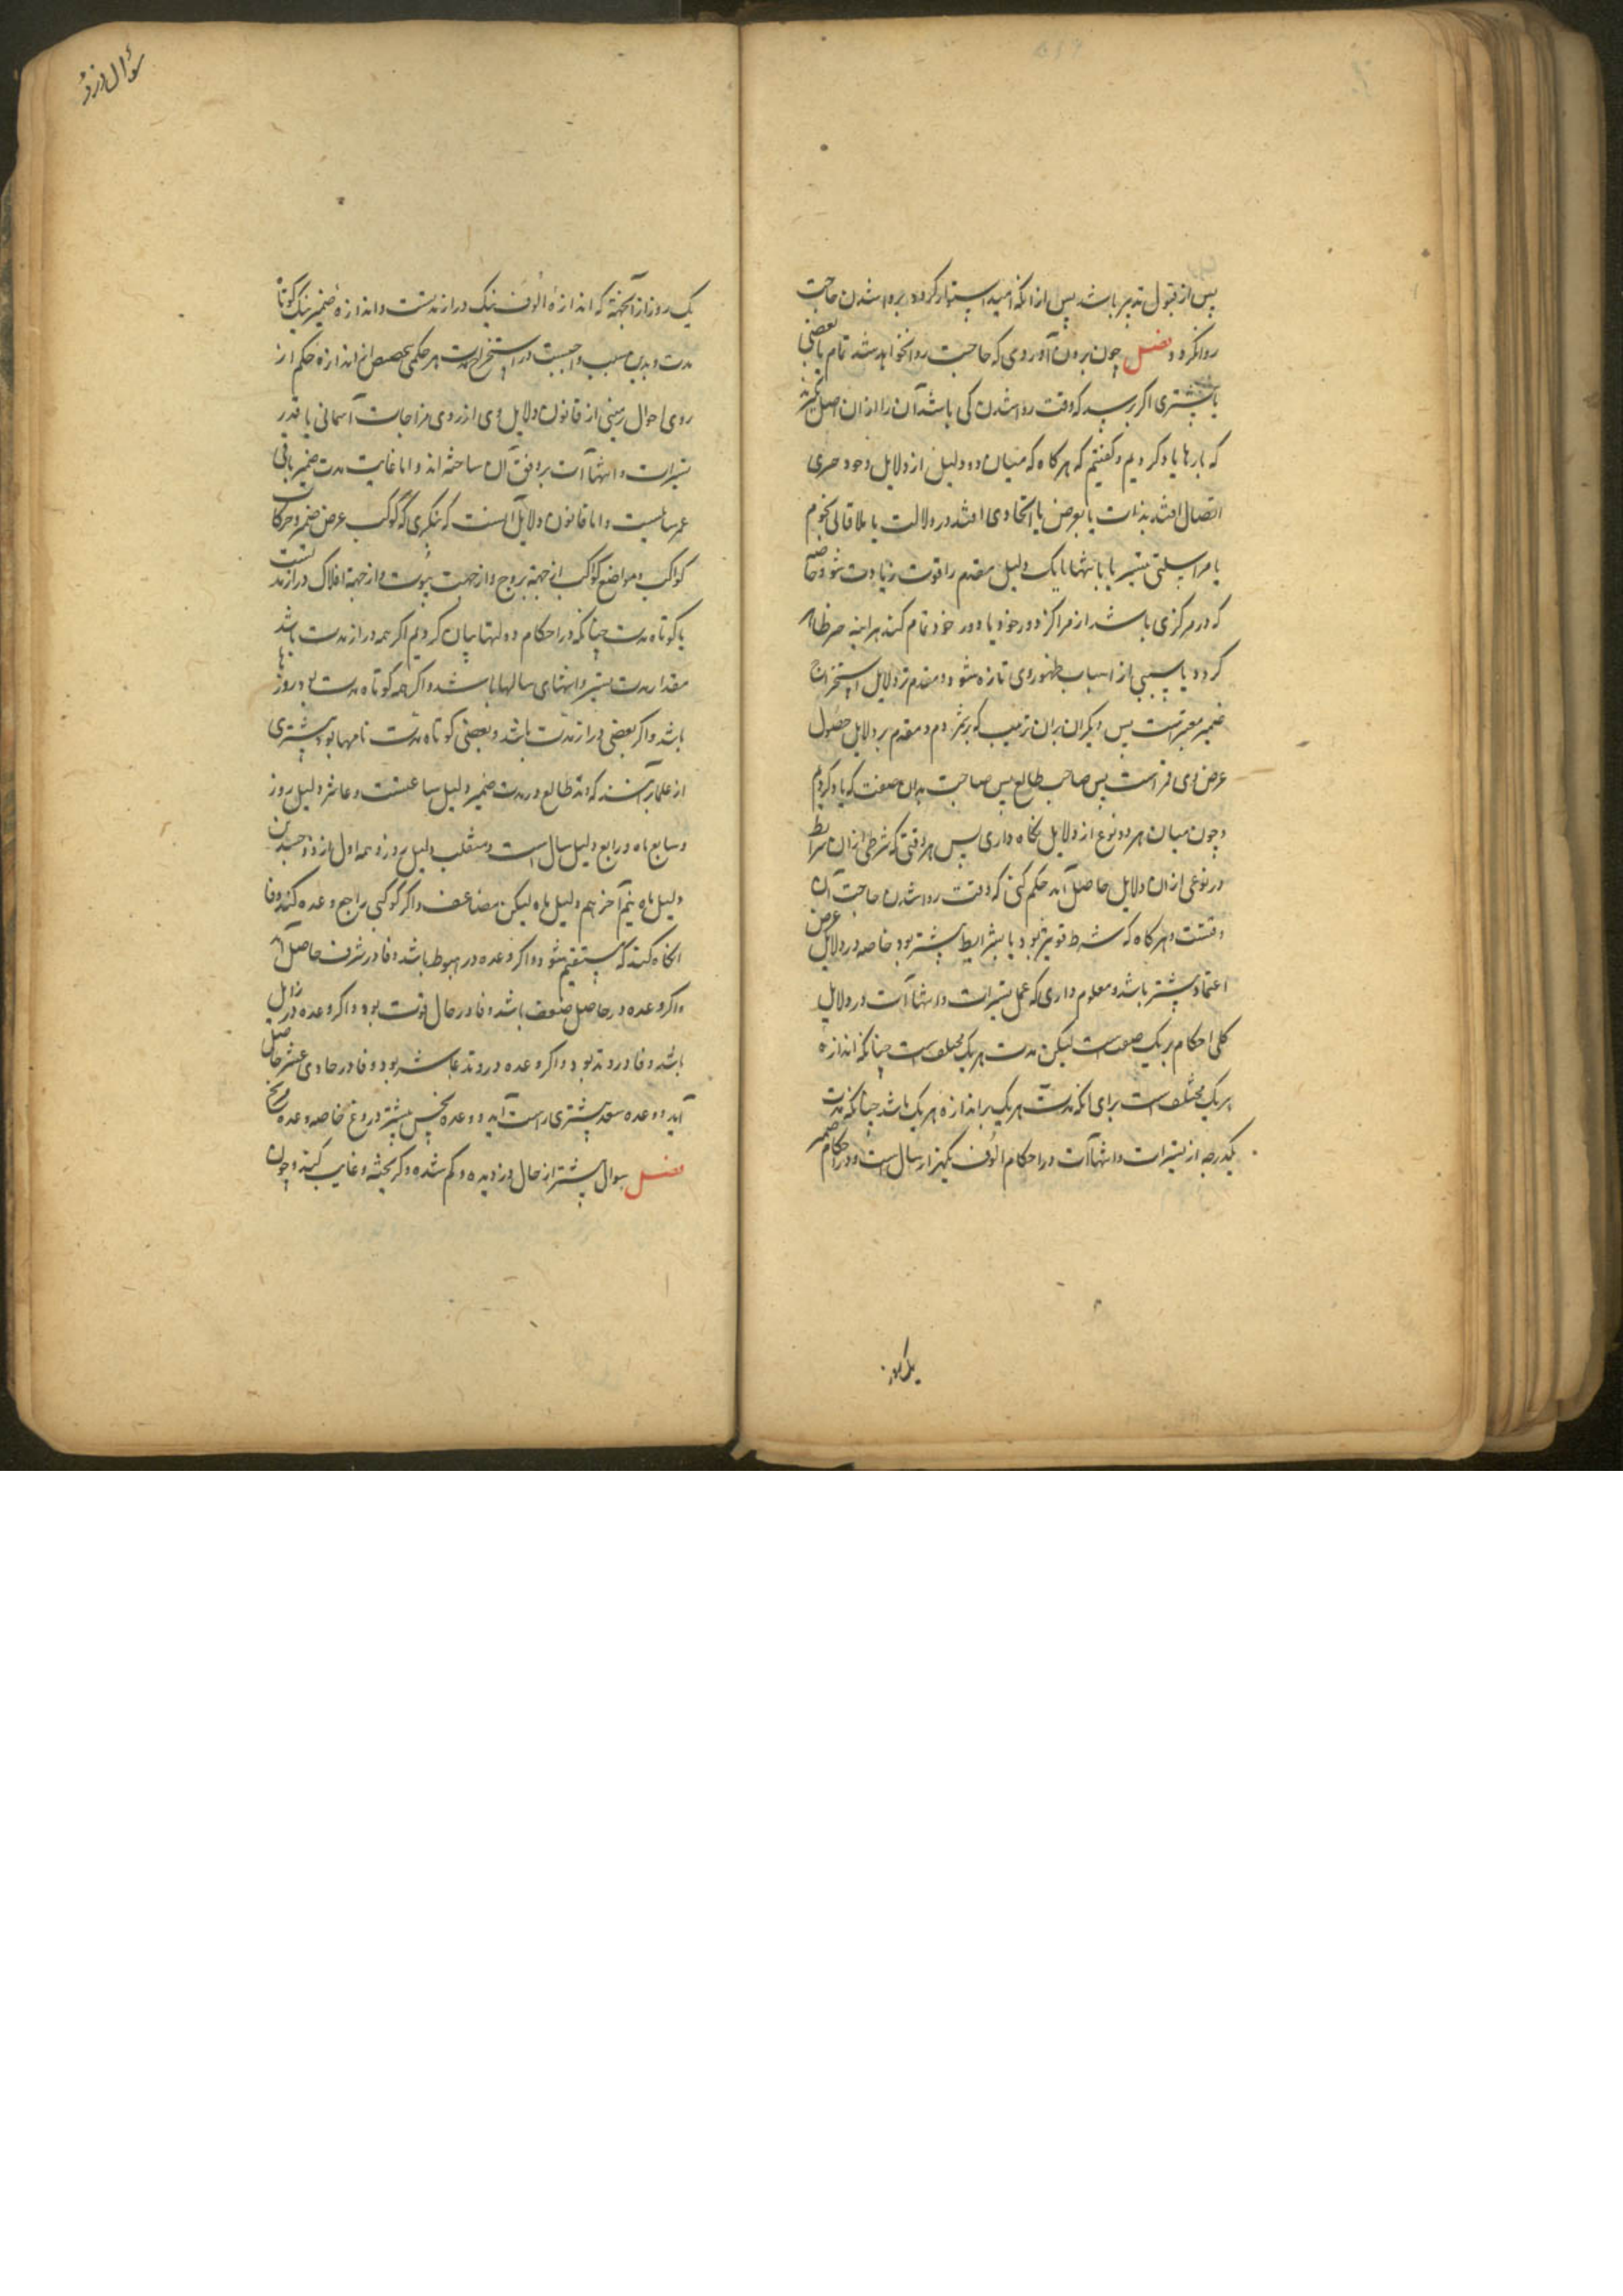 پس از قبول تدبیر باشد پس از آنکه امید استوار کرده بروا شدن حاجت
روا نکردد فصل چون برون آوردی که حاجت روا خواهد شد تمام یا بعضی
یا بیشتری اکر پرسید که وقت روا شدن کی باشد آن را از آن اصل نگر
که بارها یاد کردیم و کفتیم که هرکاه که میان دو دلیل از دلایل وجود چیزی
اتصال افتد بذات یا بعرض یا اتحادی افتد در دلالت یا ملاقاتی بجرم
یا مراسلتی بتسیر یا بانتها یا یک دلیل مقدم را قوت زیادت شود خاصه
که در مرکزی باشد از مراکز دور خود یا دور خود تمام کند هراینه چیز ظاهر
کردد یا سببی از اسباب ظهور وی تازه شود و مقدم تر دلایل استخراج
ضمیر معبرست پس دیکران بران ترتیب که بر شمردم و مقدم بر دلایل حصول
عرض وی قمر است پس صاحب طالع پس صاحبت بدان صفت که یاد کردیم
و چون میان هر دو نوع از دلایل نکاه داری پس هر وقتی که شرطی از آن شرایط
در نوعی از ان دلایل حاصل آید حکم کنی که وقت روا شدن حاجت آن
وقتست و هرکاه که شرط قویتر بود یا شرایط بیشتر بود خاصه در دلایل عرض
اعتماد بیشتر باشد و معلوم داری که عمل تسیرات و انتهاآت در دلایل
کلی احکام بر یک صفت است لیکن مدت هر یک مختلف است چنانکه اندازه
هر یک مختلف است برای آنکه مدت هر یک بر اندازه هر یک باشد چنانکه مدت
یکدرجه از تسیرات و انتهاآت در احکام الوف یکهزار سال است و در احکام ضمیر
یک روز
سؤال دزد
یک روز از آنجهة که اندازهٔ الوف نیک دراز مدتست و اندازهٔ ضمیر نیک کوتاه
مدت و بدین سبب واجبست در استخراج مدت هر حکمی تخصص از اندازه حکم از
روی احوال زمینی از قانون دلایل وی از روی مزاجات آسمانی یا قدر
تسیرات و انتهاآت بر وفق آن ساخته اند و اما غایت مدت ضمیر باقی
عمر سایلست و اما قانون دلایل آنست که بنکری که کوکب عرض ضمیر و حرکات
کواکب و مواضع کواکب از جهة بروج و از جهت بیوت و از جهة افلاک دراز مدتست
یا کوتاه مدت چنانکه در احکام دولتها بیان کردیم اکر همه دراز مدت باشد
مقدار مدت تسیر و انتهای سالها باشد و اکر همه کوتاه مدت بود روزها
باشد و اکر بعضی دراز مدت باشد و بعضی کوتاه مدت ماهها بود بیشتری
از علما برآنند که وتد طالع در مدت ضمیر دلیل ساعتست و عاشر دلیل روز
و سابع ماه و رابع دلیل سال است و منقلب دلیل روز و نیمه اول از ذو جسدین
دلیل ماه نیم آخر هم دلیل ماه لیکن مضاعف و اکر کوکبی راجع وعده کند وفا
انکاه کند که مستقیم شود و اکر وعده در هبوط باشد وفا در شرف حاصل آید
و اکر وعده در حاصل ضعف باشد وفا در حال قوت بود و اکر وعده در زایل
باشد وفا در وتد بود و اکر وعده در وتد عاشر بود وفا در حادی عشر حاصل
آید و وعده سعد بیشتری راست آید و وعده نحس بیشتر دروغ خاصه وعده مریخ
فصل سوال بیشتر از حال دزدیده و کم شده و کریخته و غایب کنند و چون